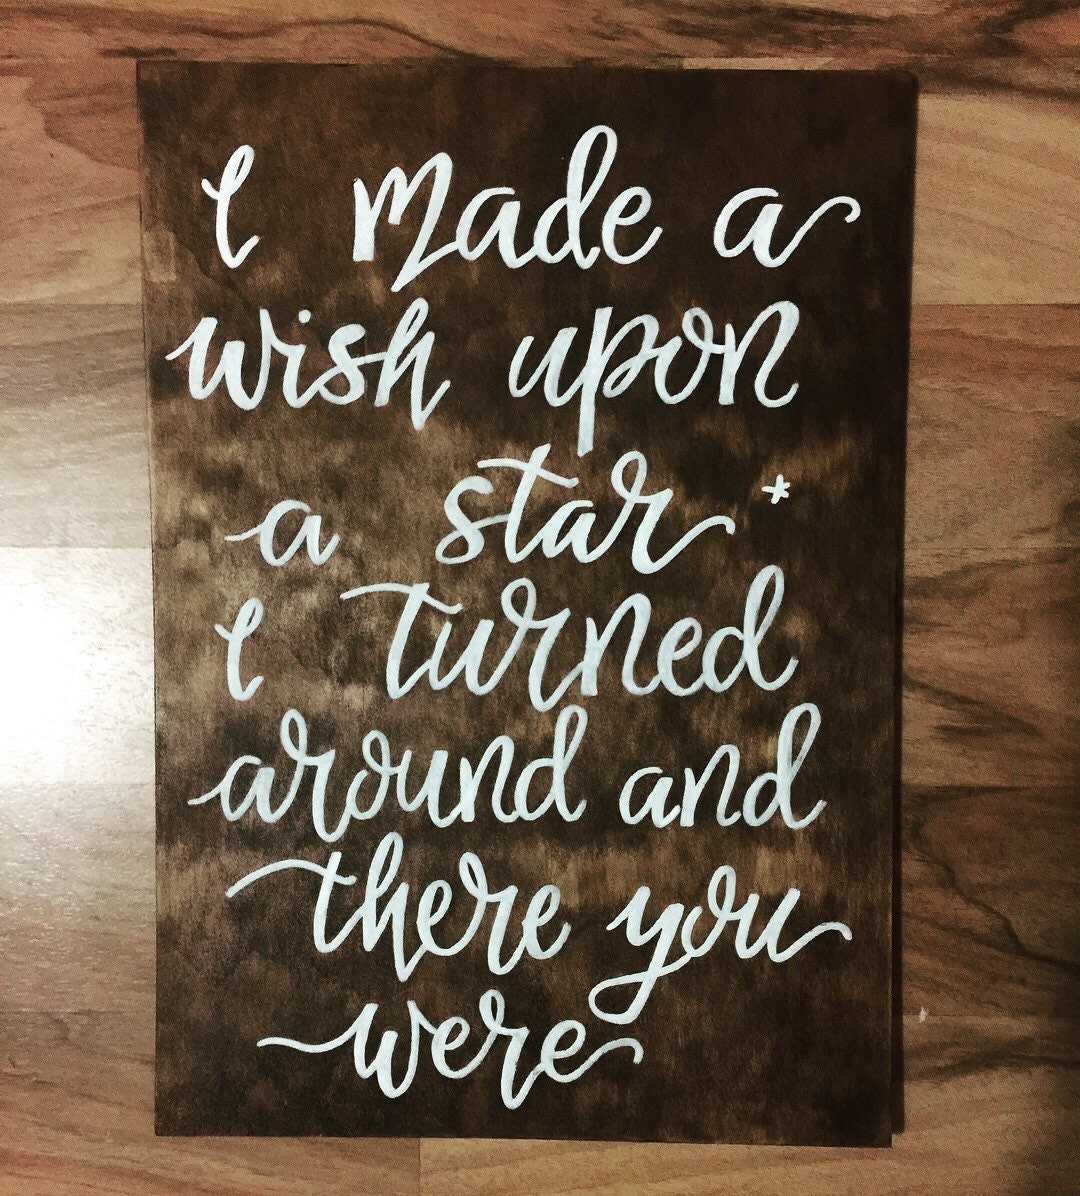 I made a
wish upon
a star *
I turned
around and
there you
were